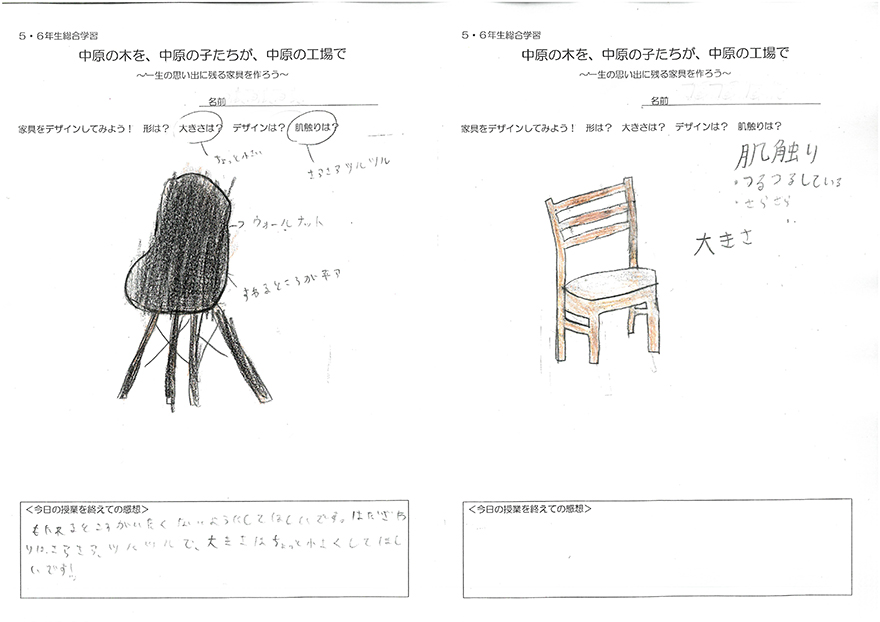 5・6年生総合学習
中原の木を、中原の子たちが、中原の工場で
～一生の思い出に残る家具を作ろう～
名前
家具をデザインしてみよう！ 形は？ 大きさは？ デザインは？ 肌触りは？
ちょっと小さい
さらさらツルツル
ウォールナット
すわるところが平ア
<今日の授業を終えての感想>
もたれるところがいたくないようにしてほしいです。はだざわ
りは、さらさら、ツルツルで、大きさはちょっと小さくしてほし
いです!
5・6年生総合学習
中原の木を、中原の子たちが、中原の工場で
～一生の思い出に残る家具を作ろう～
名前
家具をデザインしてみよう！ 形は？ 大きさは？ デザインは？ 肌触りは？
肌触り
・つるつるしている
・さらさら
大きさ
<今日の授業を終えての感想>